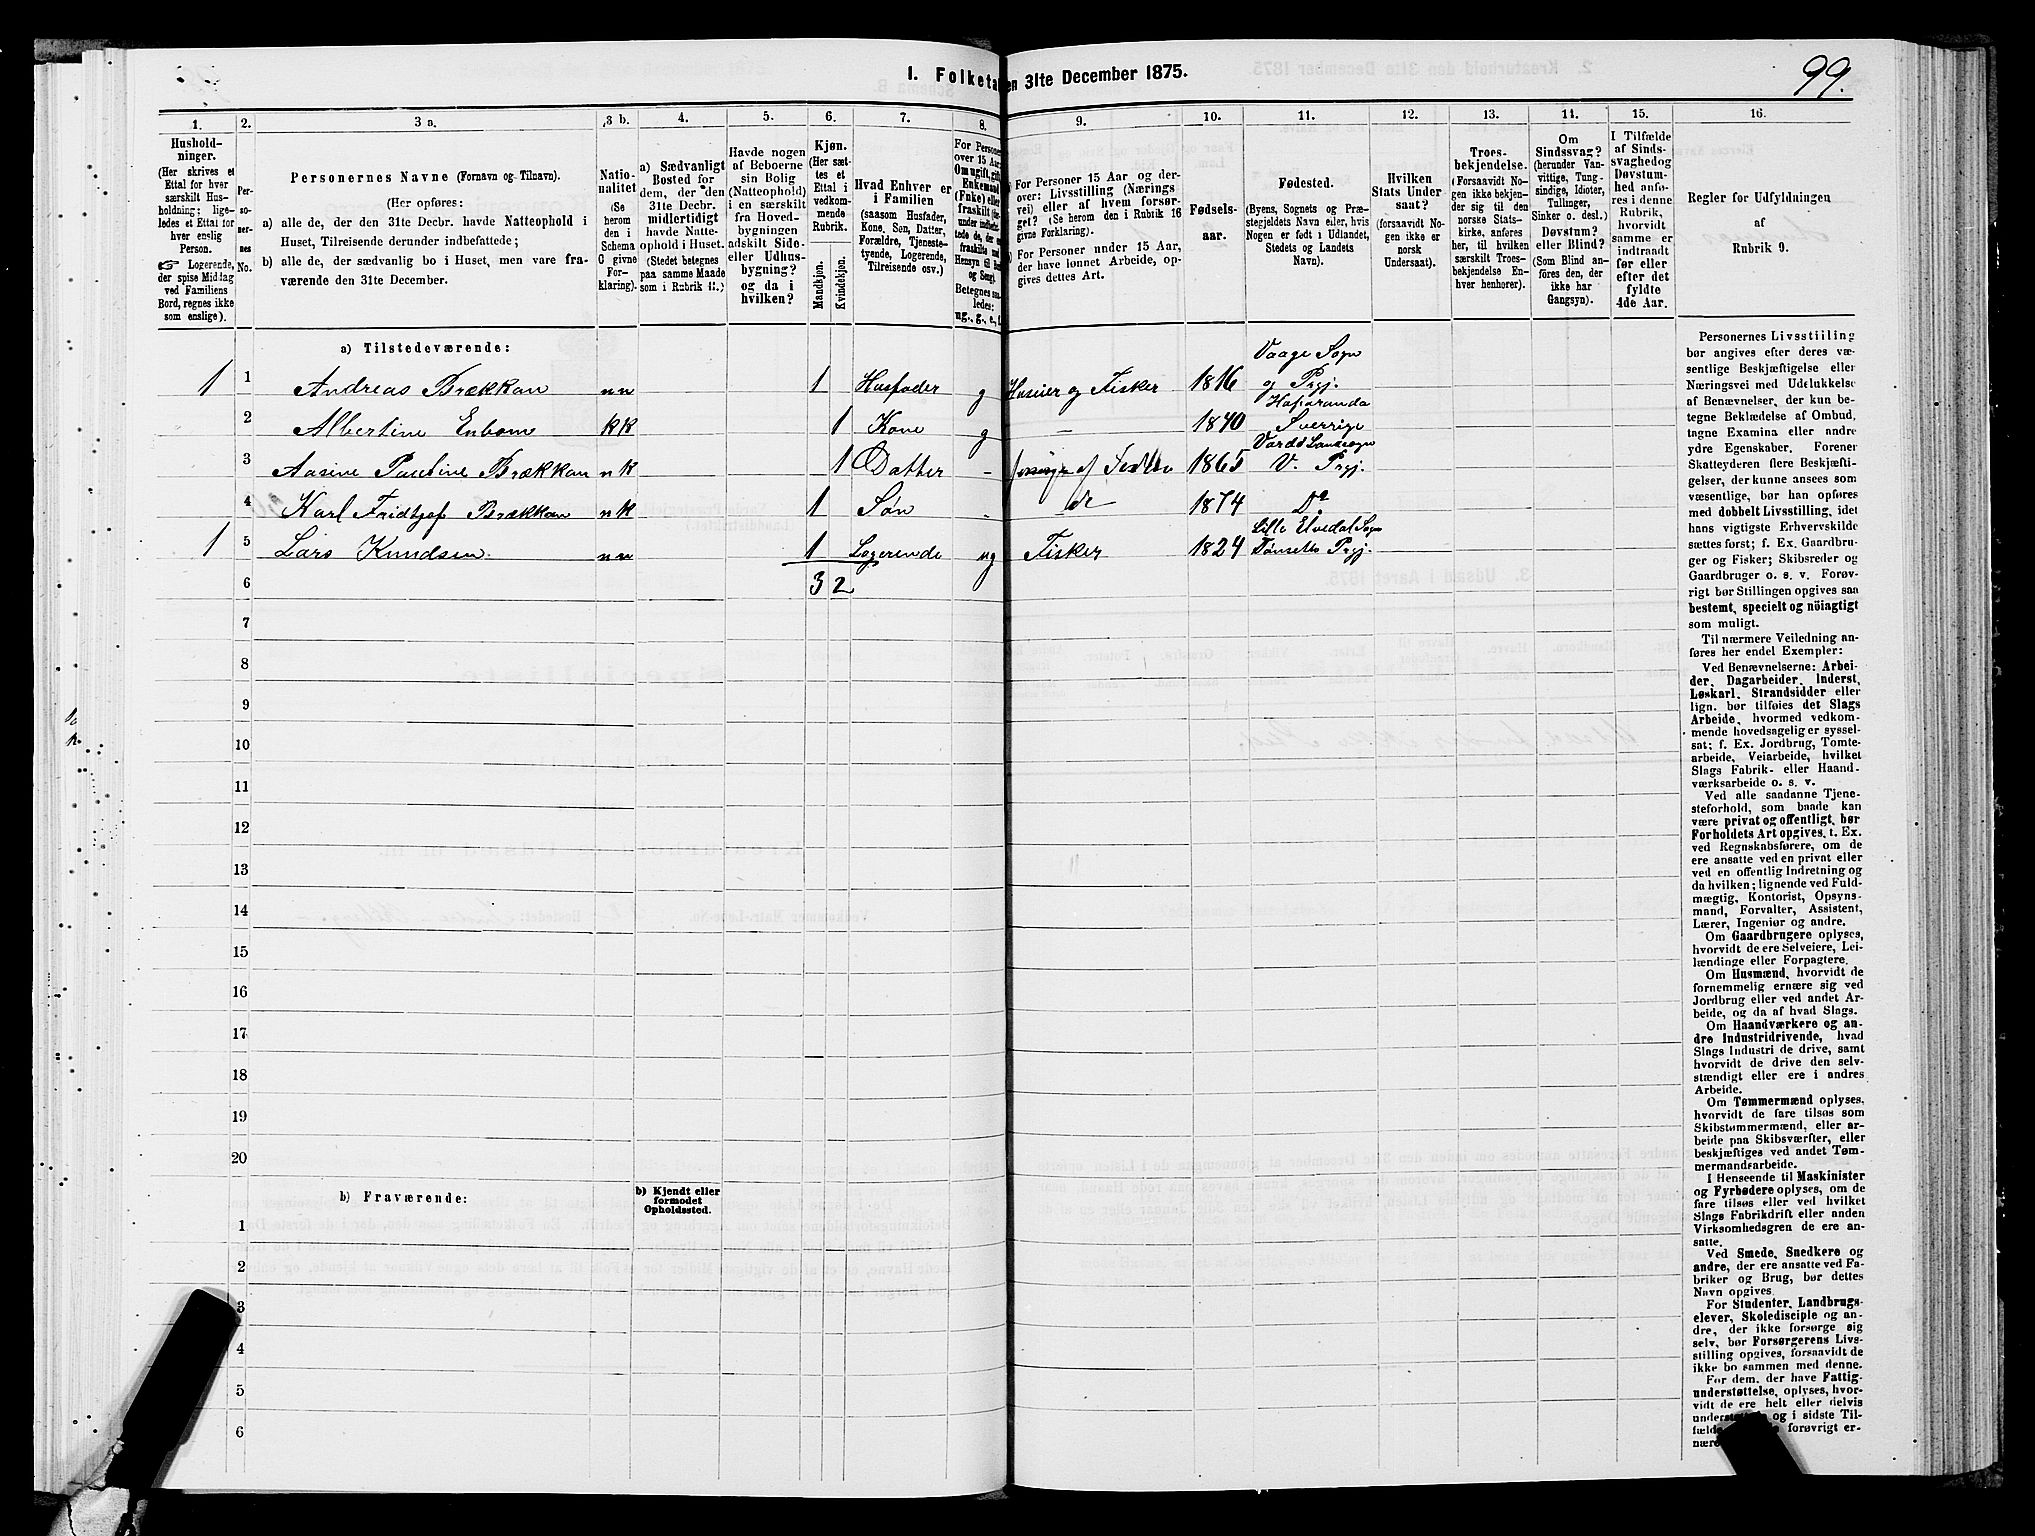 1. Folketæ
en 31te December 1875.
99.
1.
2.
3 a.
3 b.
4.
5.
6.
7.
8.
9.
10.
11.
12.
13.
14.
15.
16.
Hushold-
ninger.
(Her skrives et
Ettal for hver
særskilt Hus-
holdning; lige-
ledes et Ettal
for hver
enslig Person.
☞ Logerende,
der spise Middag
ved Familiens
Bord, regnes ikke
som enslige).
Per-
so-
ner-
nes
No.
Personernes Navne (Fornavn og Tilnavn).
(Her opføres:
a) alle de, der den 31te Decbr. havde Natteophold i
Huset, Tilreisende derunder indbefattede;
b) alle de, der sædvanlig bo i Huset, men vare fra-
værende den 31te December.
Natio-
nalitet
(Se
herom
den i
Schema
C givne
For-
klaring).
a) Sædvanligt
Bosted for
dem, der den
31te Decbr.
midlertidigt
havde Natte-
ophold i Huset.
(Stedet betegnes
paa samme Maade
som i Rubrik 11.)
Havde nogen
af Beboerne
sin Bolig
(Natteophold)
i en særskilt
fra Hoved-
bygningen
adskilt Side-
eller Udhus-
bygning?
og da i
hvilken?
Kjøn.
(Her sæt-
tes et
Ettal i
vedkom-
mende
Rubrik.
Mandkjøn.
Kvindekjøn.
Hvad Enhver er
i Familien
(saasom Husfader,
Kone, Søn, Datter,
Forældre, Tjeneste-
tyende, Logerende,
Tilreisende osv.)
For Personer
over 15 Aar:
Om ugift, gift,
Enkemand
(Enke) eller
fraskilt
Betegnes saa-
ledes:
ug., g., e., f.
For Personer 15 Aar og der-
over: Livsstilling (Nærings
vei) eller af hvem forsør-
get? (Se herom den i Rubrik 16
givne Forklaring.)
For Personer under 15 Aar,
der have lønnet Arbeide, op-
gives dettes Art.
Fødsels-
aar.
Fødested.
(Byens, Sognets og Præ-
stegjeldets Navn eller, hvis
Nogen er født i Udlandet,
Stedets og Landets
Navn).
Hvilken
Stats Under
saat?
(forsaavidt No-
gen ikke er
norsk
Undersaat).
Troes-
bekjendelse.
(Forsaavidt No-
gen ikke bekjen-
der sig til den
norske Stats-
kirke, anføres
her, til hvilken
særskilt Troes-
bekjendelse En-
hver henhører).
Om
Sindssvag?
(herunder Van-
vittige, Tung-
sindige, Idioter,
Tullinger,
Sinker o. desl.)
Døvstum?
eller Blind?
(Som Blind an-
føres den, der
ikke har
Gangsyn).
I Tilfælde
af Sinds-
svaghed og
Døvstum-
hed anfø-
res i denne
Rubrik,
hvorvidt
samme er
indtraadt
før eller
efter det
fyldte
4de Aar.
Regler for Udfyldningen
af
Rubrik 9.
a) Tilstedeværende:
1 1 Andreas Brækkan nn 1 Husfader g Huseier og Fisker 1816 Vaage Sogn og Prgj.
2 Albertine Enbom kk 1 Kone g – 1840 Haparanda Sverrige
3 Aasine Pauline Brækkan nk 1 Datter – af 1865 Vardø Landsogn V. Prgj.
4 Karl Fridtjof Brækkan nk 1 Søn - do 1874 Do
1 5 Lars Knudsen nn 1 Logerende ug Fisker 1824 Lille Elvedal Sogn Tønsets Prgj.
6 3 2
7
8
9
10
11
12
13
14
15
16
17
18
19
20
b) Fraværende:
b) Kjendt eller
formodet
Opholdssted.
1
2
3
4
5
6
Personernes Livsstilling
bør angives efter deres væ-
sentlige Beskjæftigelse eller
Næringsvei med Udelukkelse
af Benævnelser, der kun be-
tegne Beklædelse af Ombud,
tagne Examina eller andre
ydre Egenskaber. Forener
Skatteyderen flere Beskjæfti-
gelser, der kunne ansees som
væsentlige, bør han opføres
med dobbelt Livsstilling, idet
hans vigtigste Erhvervskilde
sættes først; f. Ex. Gaardbru-
ger og Fisker; Skibsreder og
Gaardbruger o. s. v. Forøv-
rigt bør Stillingen opgives saa
bestemt, specielt og nöiagtigt
som muligt.
Til nærmere Veiledning an-
føres her endel Exempler:
Ved Benævnelserne: Arbei-
der, Dagarbeider, Inderst,
Løskarl, Strandsidder eller
lign. bør tilføies det Slags
Arbeide, hvormed vedkom-
mende hovedsagelig er syssel-
sat; f. Ex. Jordbrug, Tomte-
arbeide, Veiarbeide, hvilket
Slags Fabrik- eller Haand-
værksarbeide o. s. v.
Ved alle saadanne Tjene-
steforhold, som baade kan
være privat og offentligt, bør
Forholdets Art opgives, t. Ex.
ved Regnskabsførere, om de
ere ansatte ved en privat eller
ved en offentlig Indretning og
da hvilken; lignende ved Fuld-
mægtig, Kontorist, Opsyns-
mand, Forvalter, Assistent,
Lærer, Ingeniør og andre.
Om Gaardbrugere oplyses,
hvorvidt de ere Selveiere, Lei-
lændinge eller Forpagtere.
Om Husmænd, hvorvidt de
fornemmelig ernære sig ved
Jordbrug eller ved andet Ar-
beide, og da af hvad Slags.
Om Haandværkere og an-
dre Industridrivende, hvad
Slags Industri de drive, samt
hvorvidt de drive den selv-
stændigt eller ere i andres
Arbeide.
Om Tømmermænd oplyses,
hvorvidt de fare tilsøs som
Skibstømmermænd, eller ar-
beide paa Skibsværfter, eller
beskjæftiges ved andet Tøm-
mermandsarbeide.
I Henseende til Maskinister
og Fyrbødere oplyses, om de
fare tilsøs eller ved hvilket
Slags Fabrikdrift eller anden
Virksomhedsgren de ere an-
satte.
Ved Smede, Snedkere og
andre, der ere ansatte ved Fa-
briker og Brug, bør dettes
Navn opgives.
For Studenter, Landbrugs-
elever, Skoledisciple og an-
dre, der ikke forsørge sig
selv, bør Forsørgerens Livs-
stilling opgives, forsaavidt de
ikke bo sammen med denne.
For dem, der have Fattig-
understøttelse, oplyses, hvor-
vidt de ere helt eller delvis
og i sidste Til-
fælde forøvrigt er-